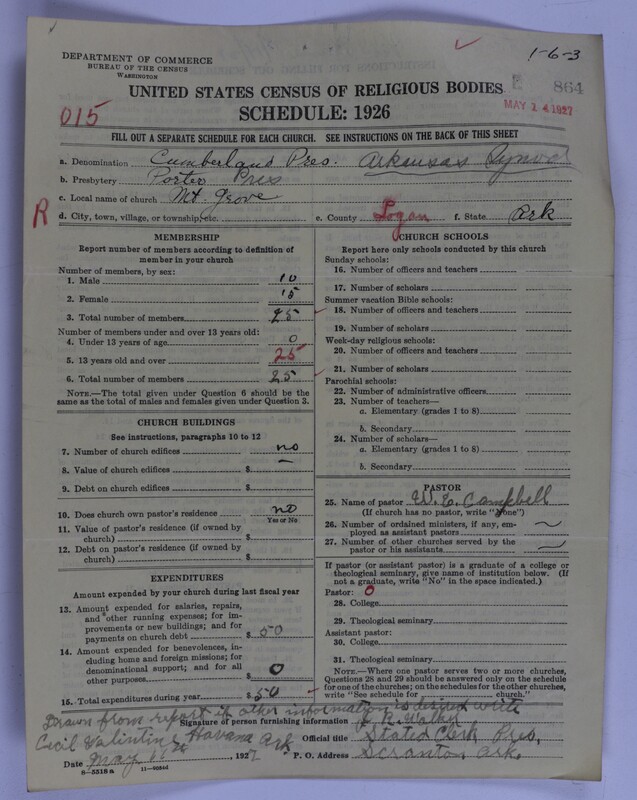 1-6-3
DEPARTMENT OF COMMERCE
BUREAU OF THE CENSUS
WASHINGTON
UNITED STATES CENSUS OF RELIGIOUS BODIES
E 864
MAY 14 1927
015
SCHEDULE: 1926
FILL OUT A SEPARATE SCHEDULE FOR EACH CHURCH. SEE INSTRUCTIONS ON THE BACK OF THIS SHEET
a. Denomination Cumberland Pres. Arkansas Synod
b. Presbytery Porter Pres
c. Local name of church Mt. Grove
R d. City, town, village, or township, etc. e. County Logan f. State Ark
MEMBERSHIP
Report number of members according to definition of
member in your church
Number of members, by sex:
1. Male 10
2. Female 15
3. Total number of members 25
Number of members under and over 13 years old:
4. Under 13 years of age 0
5. 13 years old and over 25
6. Total number of members 25
NOTE.—The total given under Question 6 should be
the same as the total of males and females given under Question 3.
CHURCH BUILDINGS
See instructions, paragraphs 10 to 12
7. Number of church edifices no
8. Value of church edifices $ —
9. Debt on church edifices $
10. Does church own pastor's residence? no
Yes or No
11. Value of pastor's residence (if owned by
church) $
12. Debt on pastor's residence (if owned by
church) $
EXPENDITURES
Amount expended by your church during last fiscal year
13. Amount expended for salaries, repairs,
and other running expenses; for im-
provements or new buildings; and for
payments on church debt $ 50
14. Amount expended for benevolences, in-
cluding home and foreign missions; for
denominational support; and for all
other purposes 0
15. Total expenditures during year $ 50
CHURCH SCHOOLS
Report here only schools conducted by this church
Sunday schools:
16. Number of officers and teachers
17. Number of scholars
Summer vacation Bible schools:
18. Number of officers and teachers
19. Number of scholars
Week-day religious schools:
20. Number of officers and teachers
21. Number of scholars
Parochial schools:
22. Number of administrative officers
23. Number of teachers—
a. Elementary (grades 1 to 8)
b. Secondary
24. Number of scholars—
a. Elementary (grades 1 to 8)
b. Secondary
PASTOR
25. Name of pastor W. E. Campbell
(If church has no pastor, write "None")
26. Number of ordained ministers, if any, em-
ployed as assistant pastors
27. Number of other churches served by the
pastor or his assistants
If pastor (or assistant pastor) is a graduate of a college or
theological seminary, give name of institution below. (If
not a graduate, write "No" in the space indicated.)
Pastor: 0
28. College
29. Theological seminary
Assistant pastor:
30. College
31. Theological seminary
NOTE.—Where one pastor serves two or more churches,
Questions 28 and 29 should be answered only on the schedule
for one of the churches; on the schedules for the other churches,
write "See schedule for church."
Drawn from report if other information is desired write
Cecil Valintine Havana Ark
Signature of person furnishing information J. R. Walker
Official title Stated Clerk Pres.
Date May 11th 1927 P. O. Address Scranton, Ark.
8-5518a